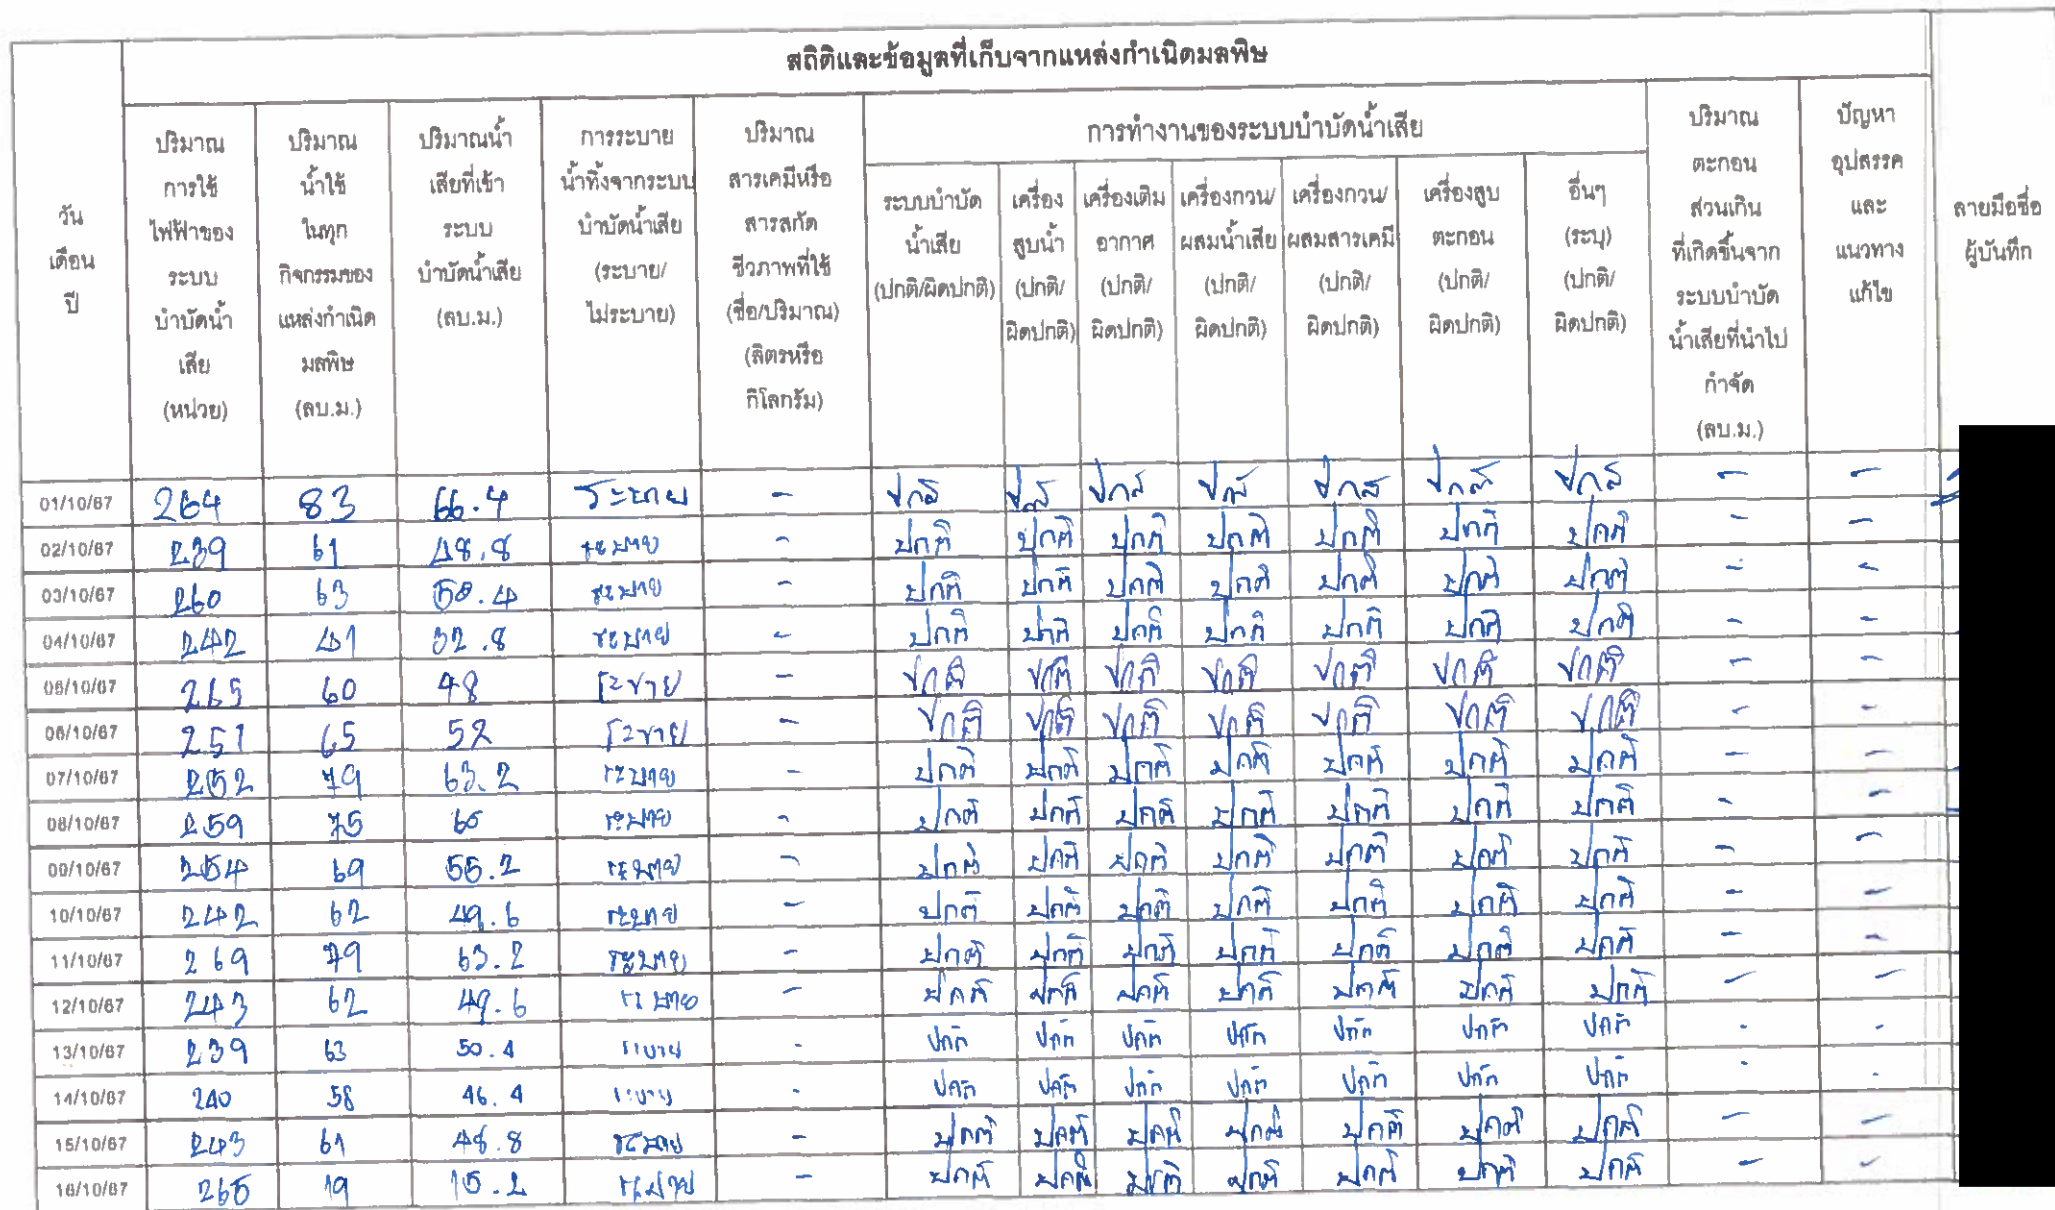 สถิติและข้อมูลที่เก็บจากแหล่งกำเนิดมลพิษ
วัน เดือน ปี
ปริมาณ การใช้ ไฟฟ้าของ ระบบ บำบัดน้ำ เสีย (หน่วย)
ปริมาณ น้ำใช้ ในทุก กิจกรรมของ แหล่งกำเนิด มลพิษ (ลบ.ม.)
ปริมาณน้ำ เสียที่เข้า ระบบ บำบัดน้ำเสีย (ลบ.ม.)
การระบาย น้ำทิ้งจากระบบ บำบัดน้ำเสีย (ระบาย/ ไม่ระบาย)
ปริมาณ สารเคมีหรือ สารสกัด ชีวภาพที่ใช้ (ชื่อ/ปริมาณ) (ลิตรหรือ กิโลกรัม)
การทำงานของระบบบำบัดน้ำเสีย
ระบบบำบัด น้ำเสีย (ปกติ/ผิดปกติ)
เครื่อง สูบน้ำ (ปกติ/ ผิดปกติ)
เครื่องเติม อากาศ (ปกติ/ ผิดปกติ)
เครื่องกวน/ ผสมน้ำเสีย (ปกติ/ ผิดปกติ)
เครื่องกวน/ ผสมสารเคมี (ปกติ/ ผิดปกติ)
เครื่องสูบ ตะกอน (ปกติ/ ผิดปกติ)
อื่นๆ (ระบุ) (ปกติ/ ผิดปกติ)
ปริมาณ ตะกอน ส่วนเกิน ที่เกิดขึ้นจาก ระบบบำบัด น้ำเสียที่นำไป กำจัด (ลบ.ม.)
ปัญหา อุปสรรค และ แนวทาง แก้ไข
ลายมือชื่อ ผู้บันทึก
01/10/67 264 83 66.4 ระบาย - ปกติ ปกติ ปกติ ปกติ ปกติ ปกติ ปกติ - -
02/10/67 239 61 48.8 ระบาย - ปกติ ปกติ ปกติ ปกติ ปกติ ปกติ ปกติ - -
03/10/67 260 63 50.4 ระบาย - ปกติ ปกติ ปกติ ปกติ ปกติ ปกติ ปกติ - -
04/10/67 242 41 32.8 ระบาย - ปกติ ปกติ ปกติ ปกติ ปกติ ปกติ ปกติ - -
05/10/67 265 60 48 ระบาย - ปกติ ปกติ ปกติ ปกติ ปกติ ปกติ ปกติ - -
06/10/67 251 65 52 ระบาย - ปกติ ปกติ ปกติ ปกติ ปกติ ปกติ ปกติ - -
07/10/67 252 79 63.2 ระบาย - ปกติ ปกติ ปกติ ปกติ ปกติ ปกติ ปกติ - -
08/10/67 259 75 60 ระบาย - ปกติ ปกติ ปกติ ปกติ ปกติ ปกติ ปกติ - -
09/10/67 254 69 55.2 ระบาย - ปกติ ปกติ ปกติ ปกติ ปกติ ปกติ ปกติ - -
10/10/67 242 62 49.6 ระบาย - ปกติ ปกติ ปกติ ปกติ ปกติ ปกติ ปกติ - -
11/10/67 269 79 63.2 ระบาย - ปกติ ปกติ ปกติ ปกติ ปกติ ปกติ ปกติ - -
12/10/67 243 62 49.6 ระบาย - ปกติ ปกติ ปกติ ปกติ ปกติ ปกติ ปกติ - -
13/10/67 239 63 50.4 ระบาย - ปกติ ปกติ ปกติ ปกติ ปกติ ปกติ ปกติ - -
14/10/67 240 58 46.4 ระบาย - ปกติ ปกติ ปกติ ปกติ ปกติ ปกติ ปกติ - -
15/10/67 243 61 48.8 ระบาย - ปกติ ปกติ ปกติ ปกติ ปกติ ปกติ ปกติ - -
16/10/67 265 19 15.2 ระบาย - ปกติ ปกติ ปกติ ปกติ ปกติ ปกติ ปกติ - -